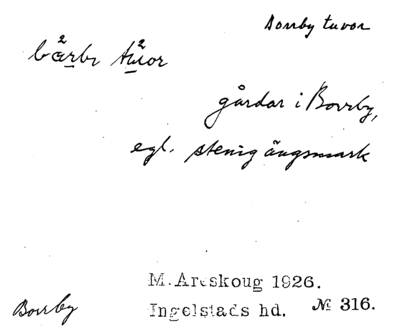 Borrby tuvor
bærbr tu̲or
gårdar i Borrby,
egl. stenig ängsmark
M. Areskoug 1926.
Borrby
Ingelstads hd. № 316.